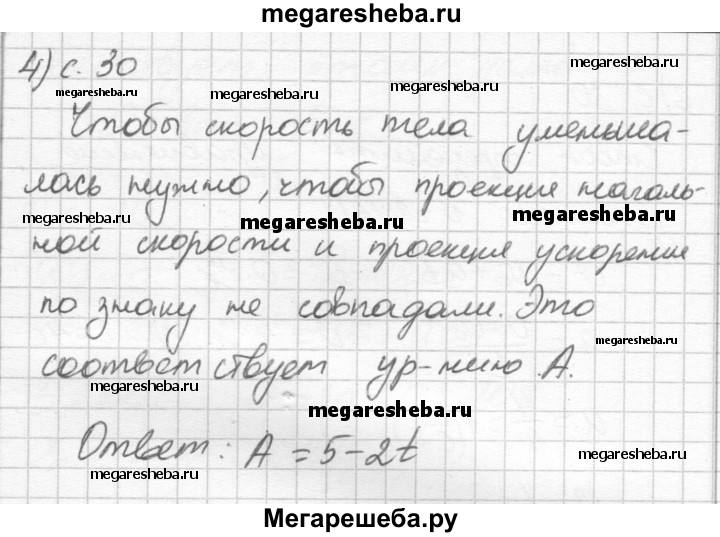 megaresheba.ru
4) с. 30
megaresheba.ru
megaresheba.ru
megaresheba.ru
megaresheba.ru
Чтобы скорость тела уменьша-
лась нужно, чтобы проекция началь-
megaresheba.ru
megaresheba.ru
megaresheba.ru
ной скорости и проекция ускорения
по знаку не совпадали. Это
megaresheba.ru
соответствует ур-нию А.
megaresheba.ru
megaresheba.ru
megaresheba.ru
Ответ: А = 5 - 2t
megaresheba.ru
megaresheba.ru
Мегарешеба.ру